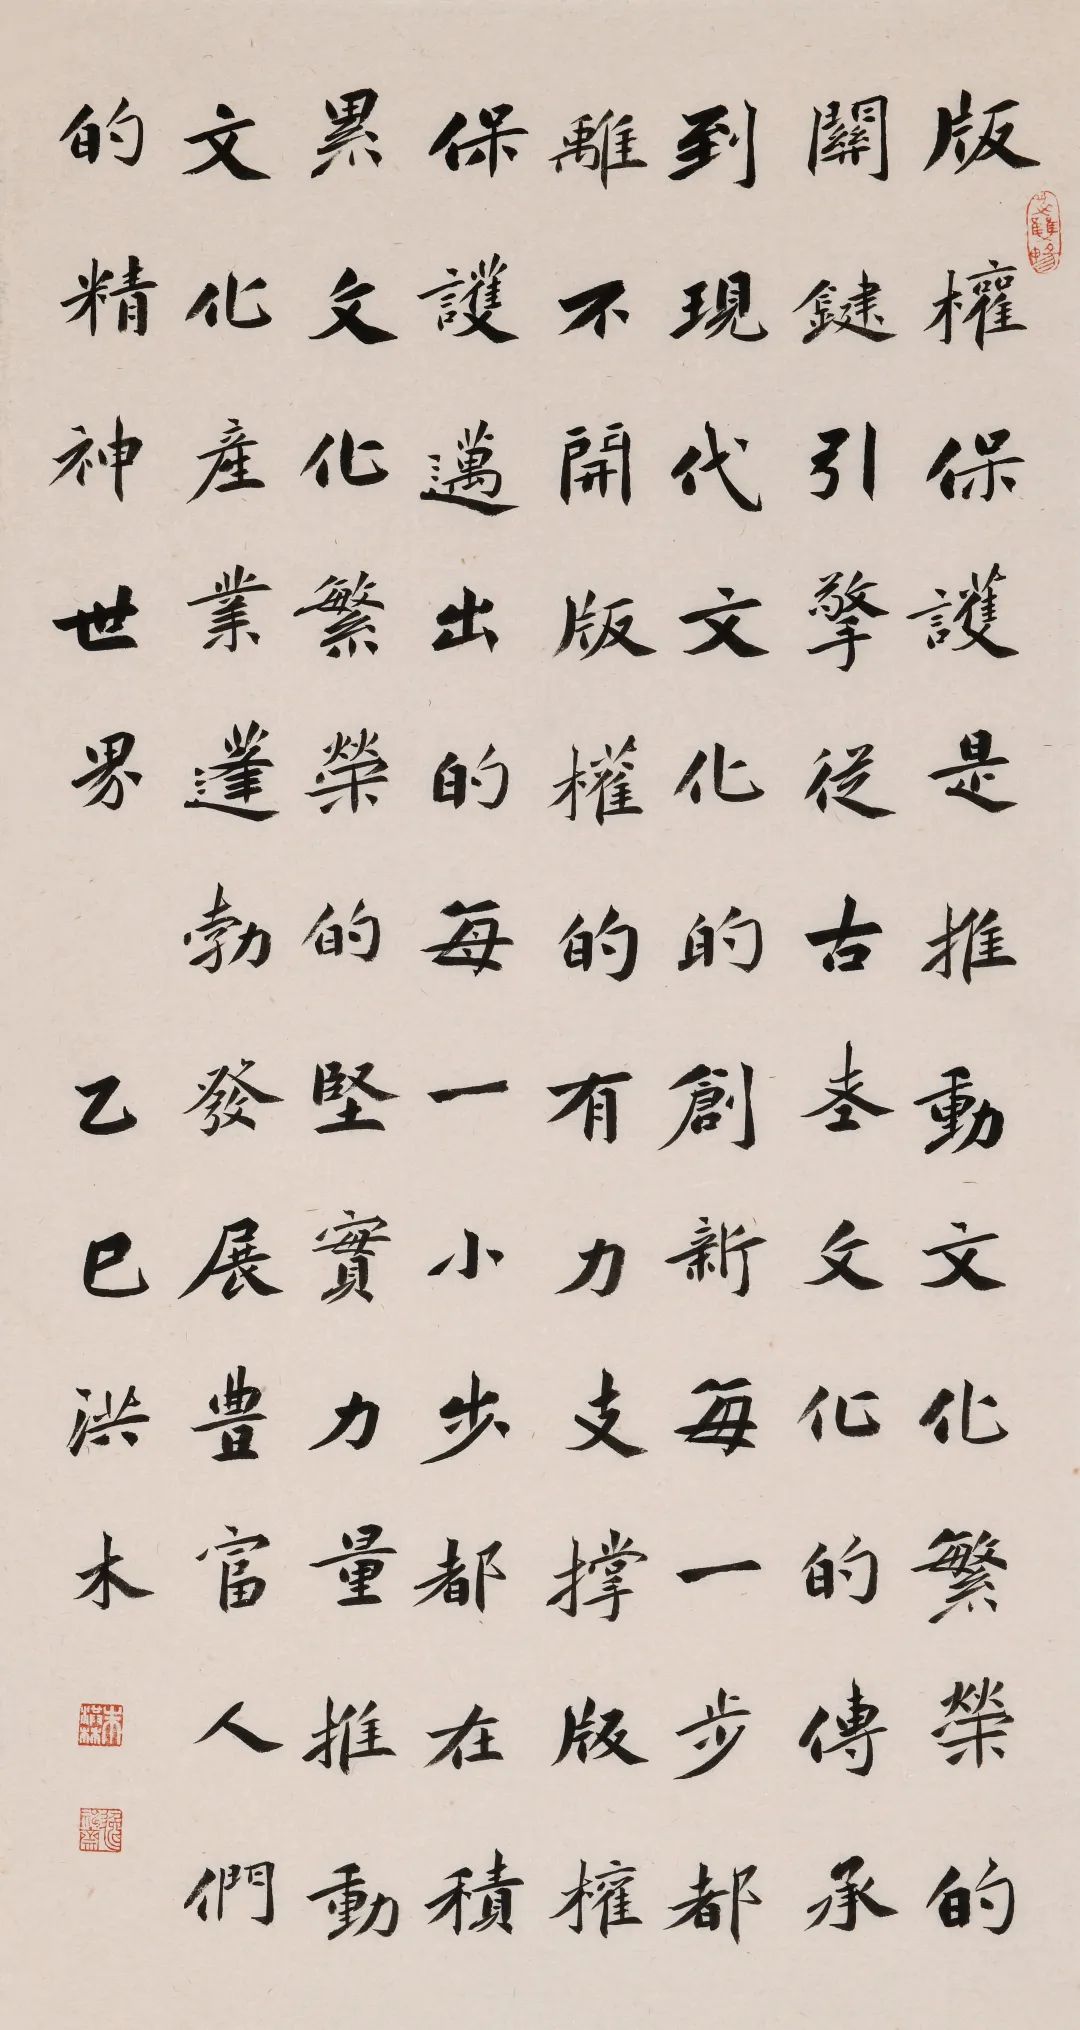 版權保護是推動文化繁榮的
關鍵引擎從古老文化的傳承
到現代文化的創新每一步都
離不開版權的有力支撐版權
保護邁出的每一小步都在積
累文化繁榮的堅實力量推動
文化産業蓬勃發展豊富人們
的精神世界 乙巳洪木